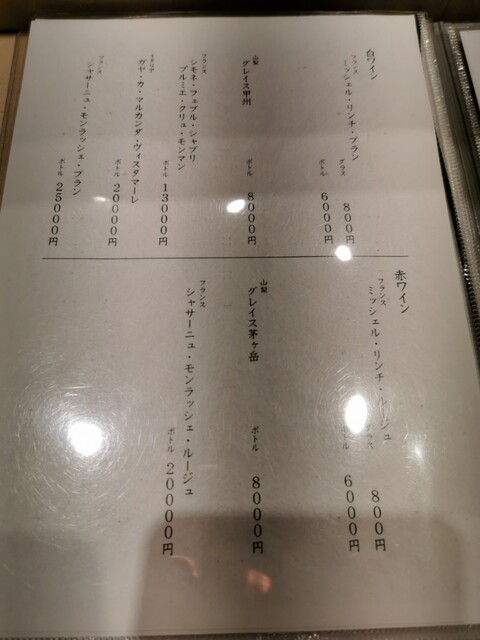 白ワイン
フランス
ミッシェル・リンチ・ブラン
グラス 800円
ボトル 6000円
山梨
グレイス甲州
ボトル 8000円
フランス
シモネ・フェブル・シャブリ
プルミエ・クリュ・モンマン
ボトル 13000円
イタリア
ガヤ・カ・マルカンダ・ヴィスタマーレ
ボトル 20000円
フランス
シャサーニュ・モンラッシェ・ブラン
ボトル 25000円
赤ワイン
フランス
ミッシェル・リンチ・ルージュ
グラス 800円
ボトル 6000円
山梨
グレイス茅ヶ岳
ボトル 8000円
フランス
シャサーニュ・モンラッシェ・ルージュ
ボトル 20000円